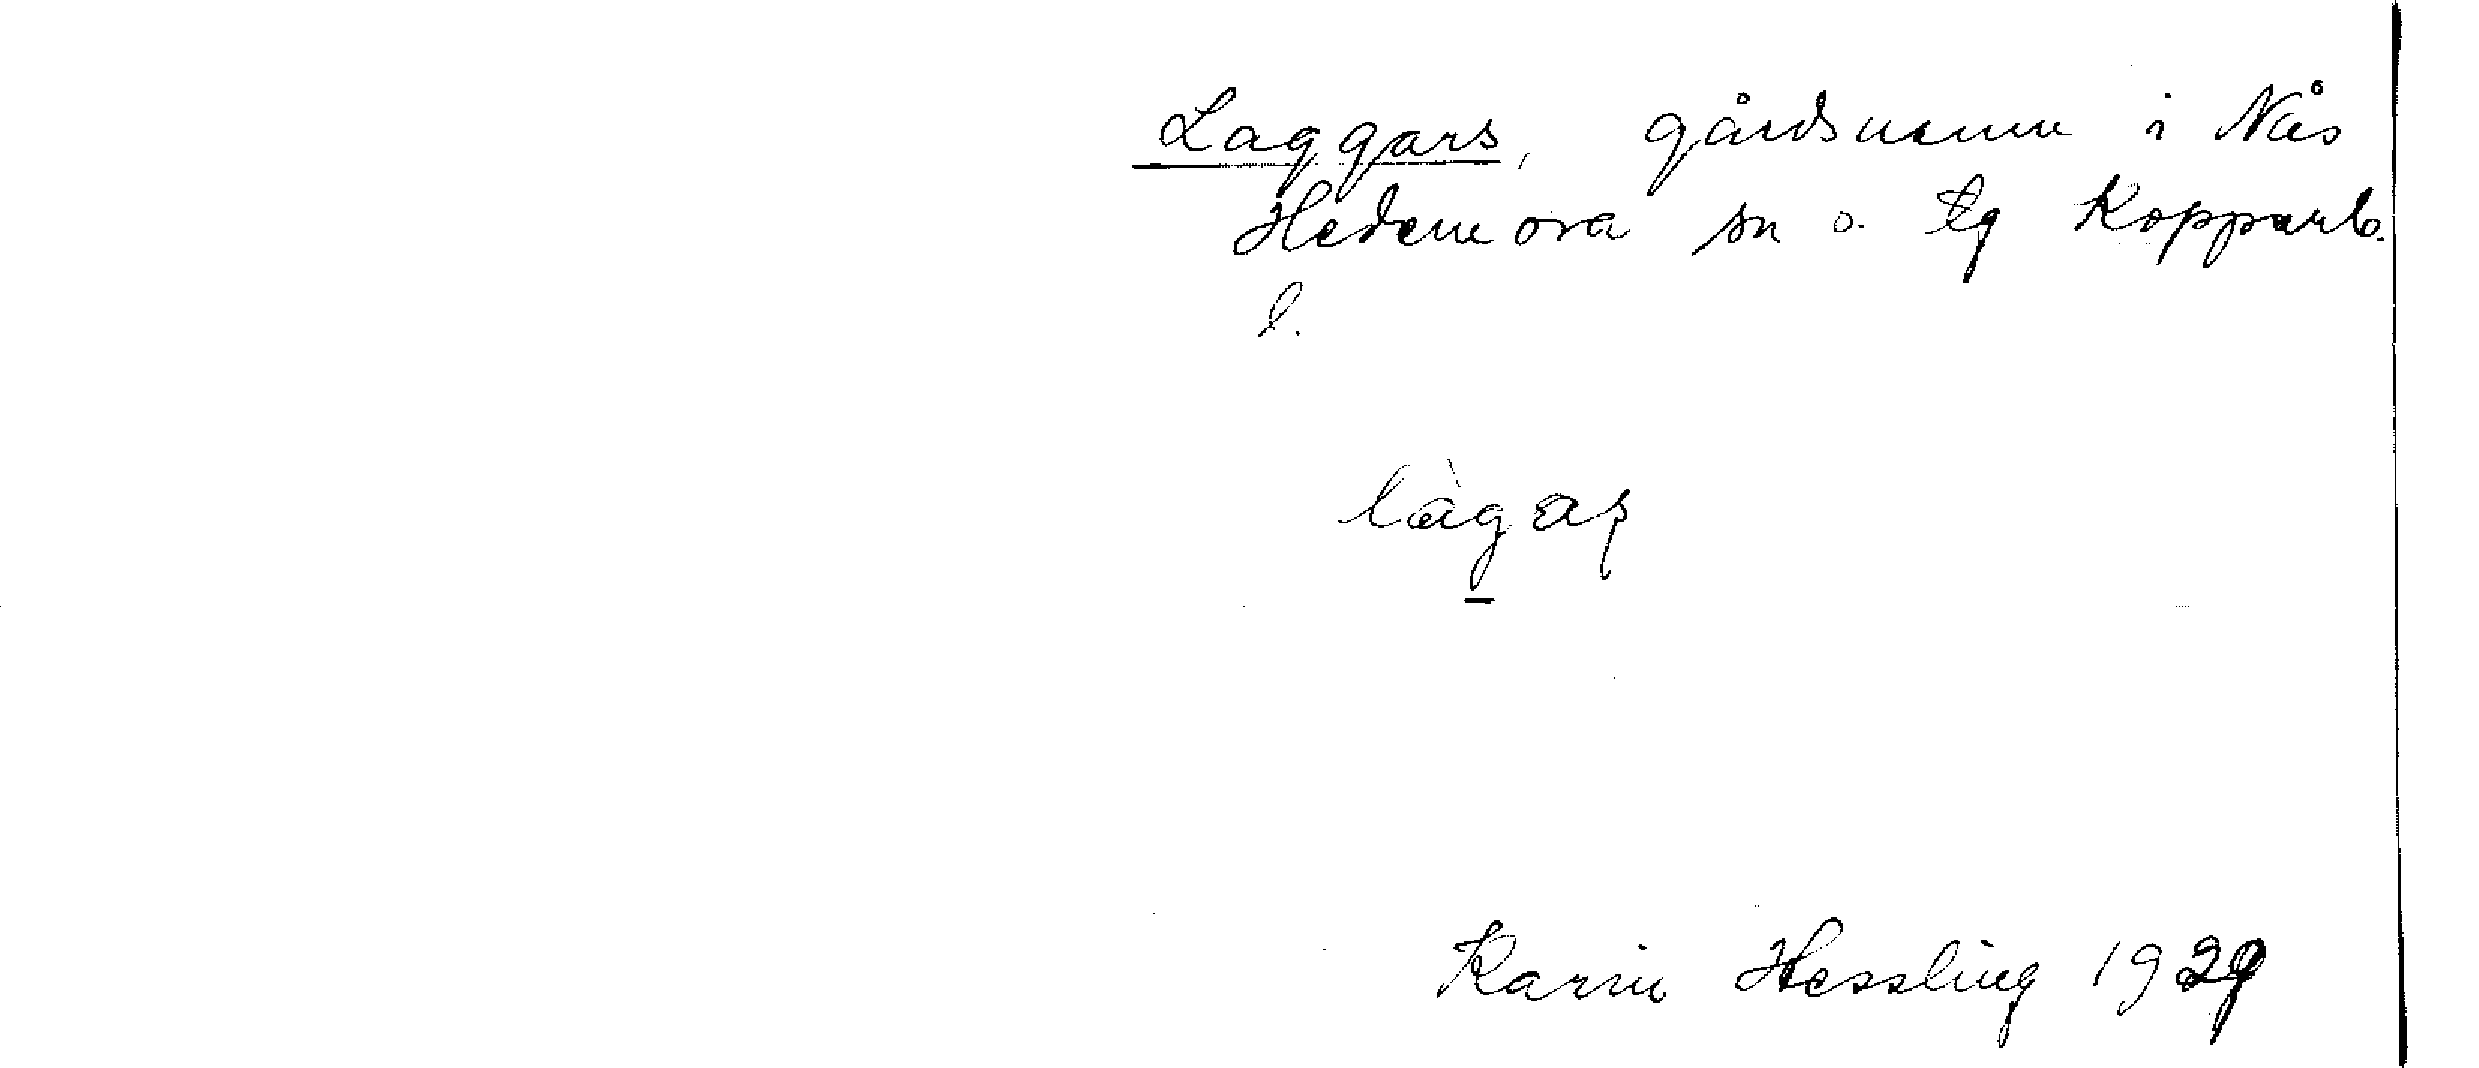 Laggars, gårdsnamn i Nås
Hedemora sn o. tg Kopparb.
l.
làgaʂ
Karin Hessling 1929